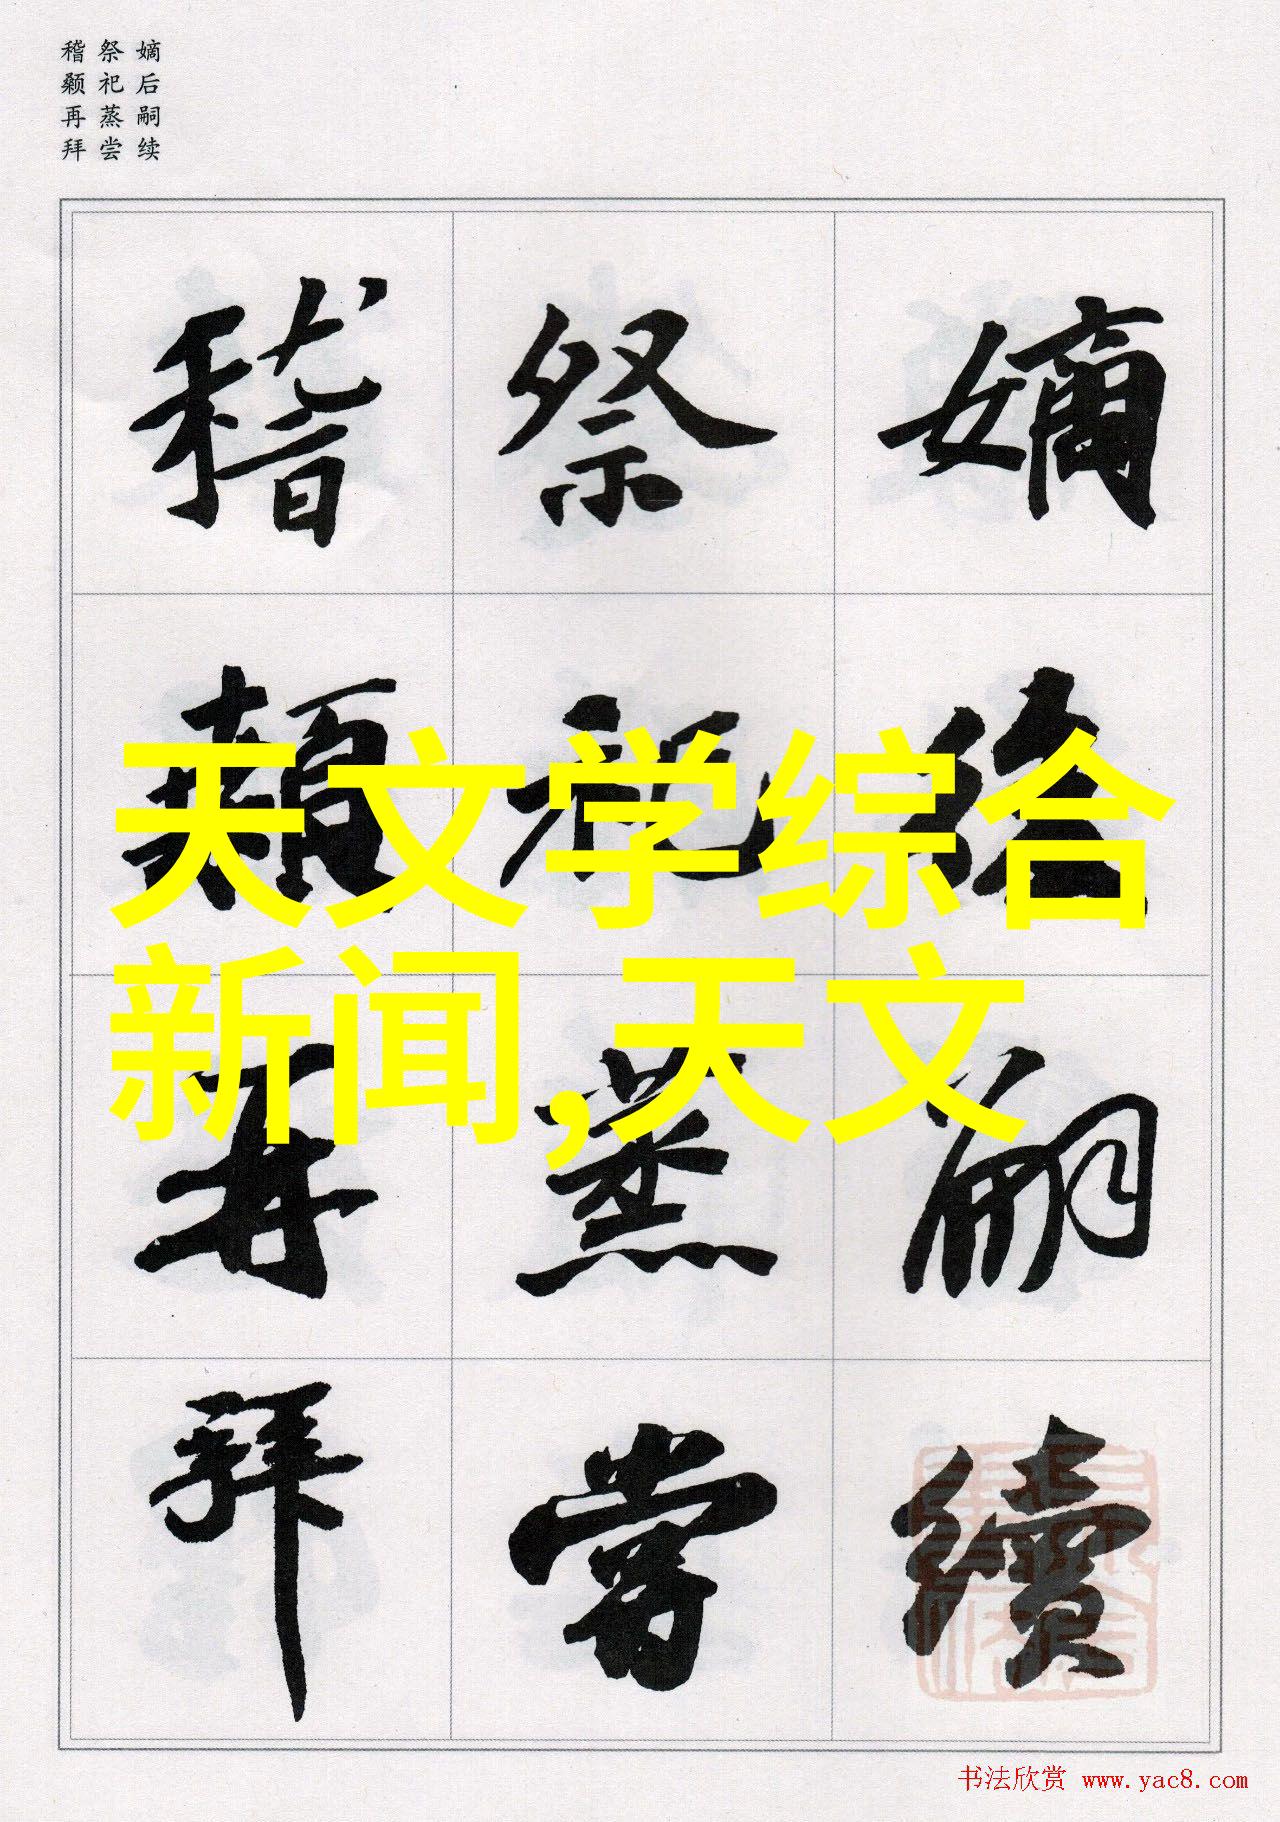 嫡后嗣续
祭祀蒸尝
稽颡再拜
嫡後嗣續
祭祀蒸嘗
稽顙再拜
天文学综合
新闻,天文
书法欣赏 www.yac8.com